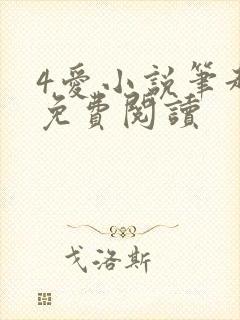 4.愛小說筆
免費閱讀
戈洛斯